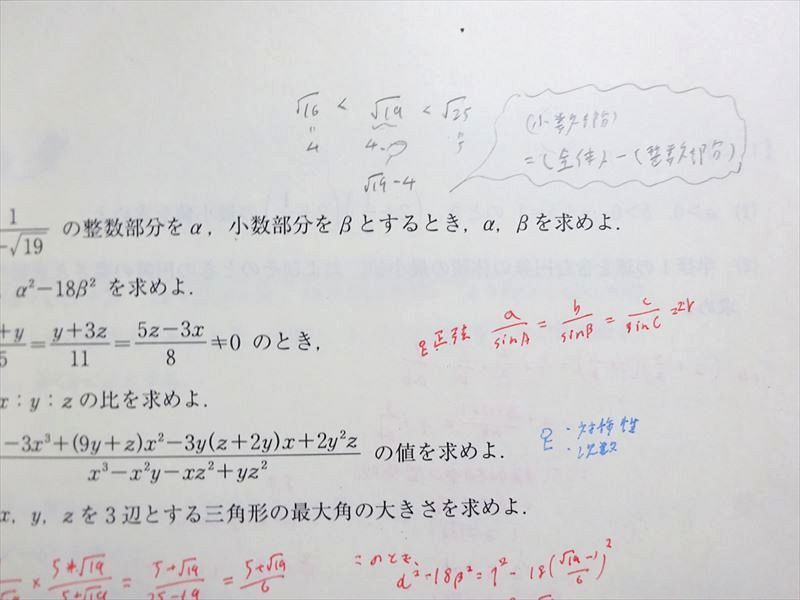 √16 < √19 < √25
4 4.… 5
√19−4
(小数部分)
=(全体)−(整数部分)
1/−√19 の整数部分をα, 小数部分をβとするとき, α, βを求めよ.
, α²−18β² を求めよ.
+y/5 = y+3z/11 = 5z−3x/8 ≠0 のとき,
正弦 a/sinA = b/sinB = c/sinC =2R
x : y : z の比を求めよ.
−3x³+(9y+z)x²−3y(z+2y)x+2y²z/x³−x²y−xz²+yz² の値を求めよ.
・対称性
・次数
x, y, zを3辺とする三角形の最大角の大きさを求めよ.
/√19 × 5+√19/5+√19 = 5+√19/25−19 = 5+√19/6
このとき,
α²−18β²=1²−18(√19−1/6)²